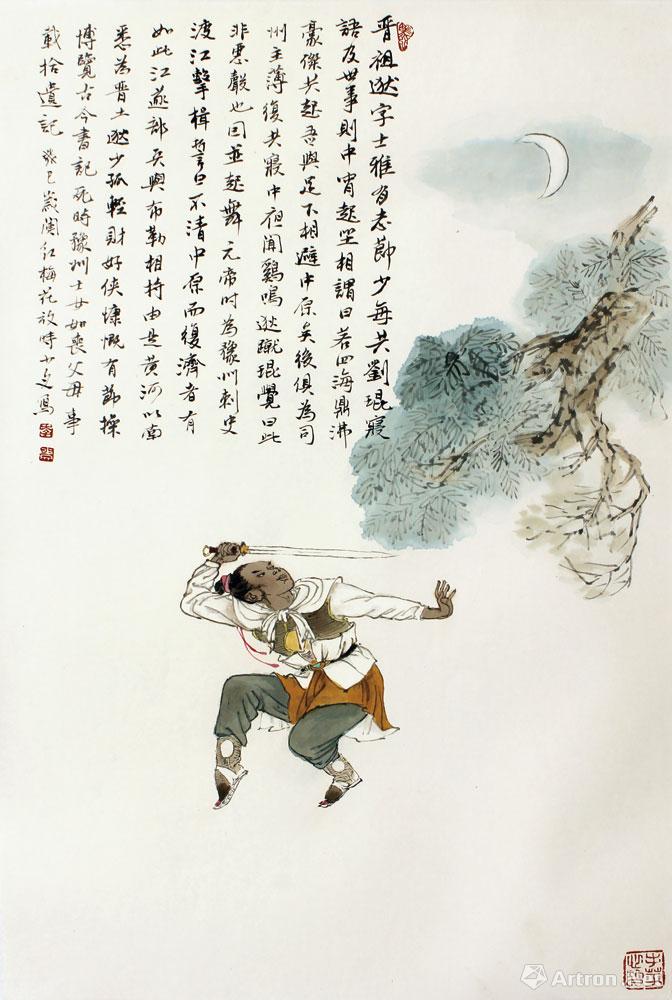 晋祖逖字士雅有志節少每共劉琨寢
語及世事則中宵起坐相謂曰若四海鼎沸
豪傑共起吾與足下相避中原矣後俱為司
州主薄復共寢中夜聞鷄鳴逖蹴琨覺曰此
非惡聲也因並起舞元帝时為豫州刺史
渡江擊楫誓曰不清中原而復濟者有
如此江遂部兵與布勒相持由是黄河以南
悉為晋土逖少孤輕財好俠慷慨有節操
博覽古今書記死時豫州士女如喪父母事
載拾遺記癸巳歲闌红梅花放時少之寫
Artron